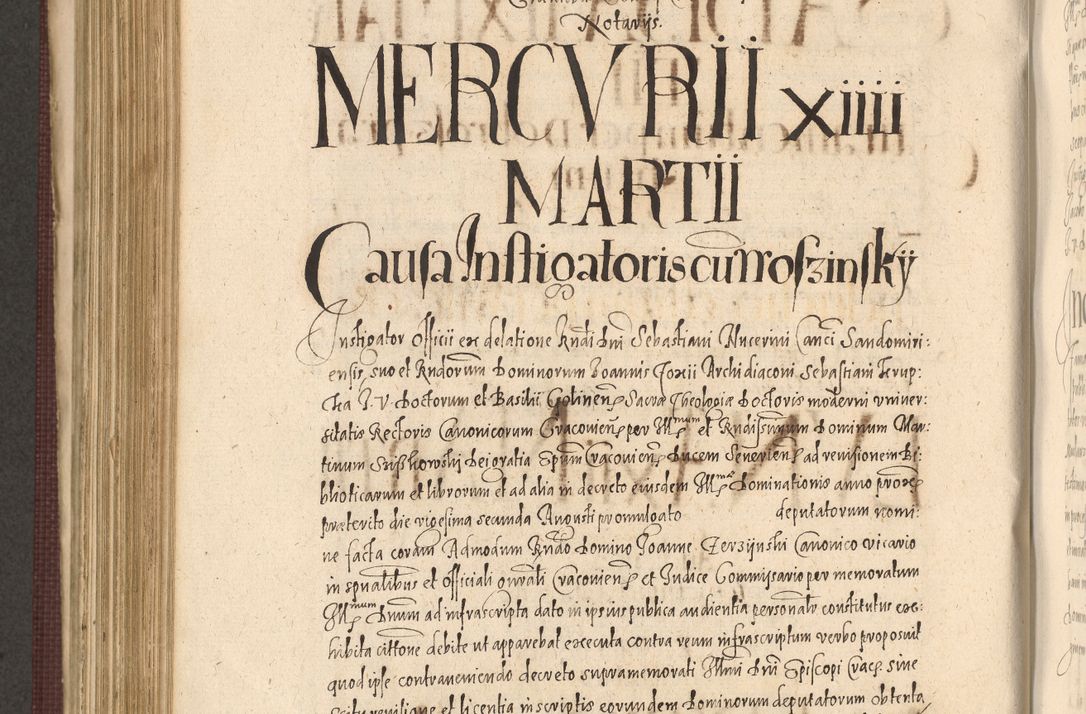 Notarijs.
MERCVRII XIIII
MARTII
Causa Instigatoris cum roszinskÿ
Instigator Officii ex delatione Rndi Dni Sebastiani Nucerini Canci Sandomiri:
ensis, suo et Rndorum Dominorum Joannis Foxii Archidiaconi Sebastiani Krup:
cka J. V Doctorum et Basilii Golinen Sacra Theologia Doctoris moderni vniver:
sitatis Rectoris Canonicorum Cracovien per Illmum et Rndissimum Dominum Mar:
tinum Sziskowski Dei gratia Epum Cracovien Ducem Severien ad revisionem Bi:
blioticarum et librorum et ad alia in decreto eiusdem Illmæ Dominationis anno proxe
præterito die vigesima secunda Augusti promulgato deputatorum nomi:
ne facta coram Admodum Rndo Domino Joanne Zerzijnski Canonico vicario
in spualibus et Officiali gnrali Cracovien et Judice Commissario per memoratum
Illmum Dnum ad infrascripta dato in ipsius publica audientia personalr constitutus ex:
hibita citione debite ut apparebat executa contra reum infrascriptum verbo proposuit
quod ipse contraveniendo decreto supramemorati Illmi Dni Episcopi Crac sine
scitu reuisione et licentia in scriptis eorundem Dominorum deputatorum obtenta